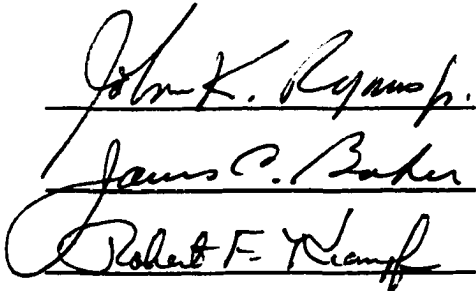 John K. Ryans Jr.
James C. Baker
Robert F. Krampf